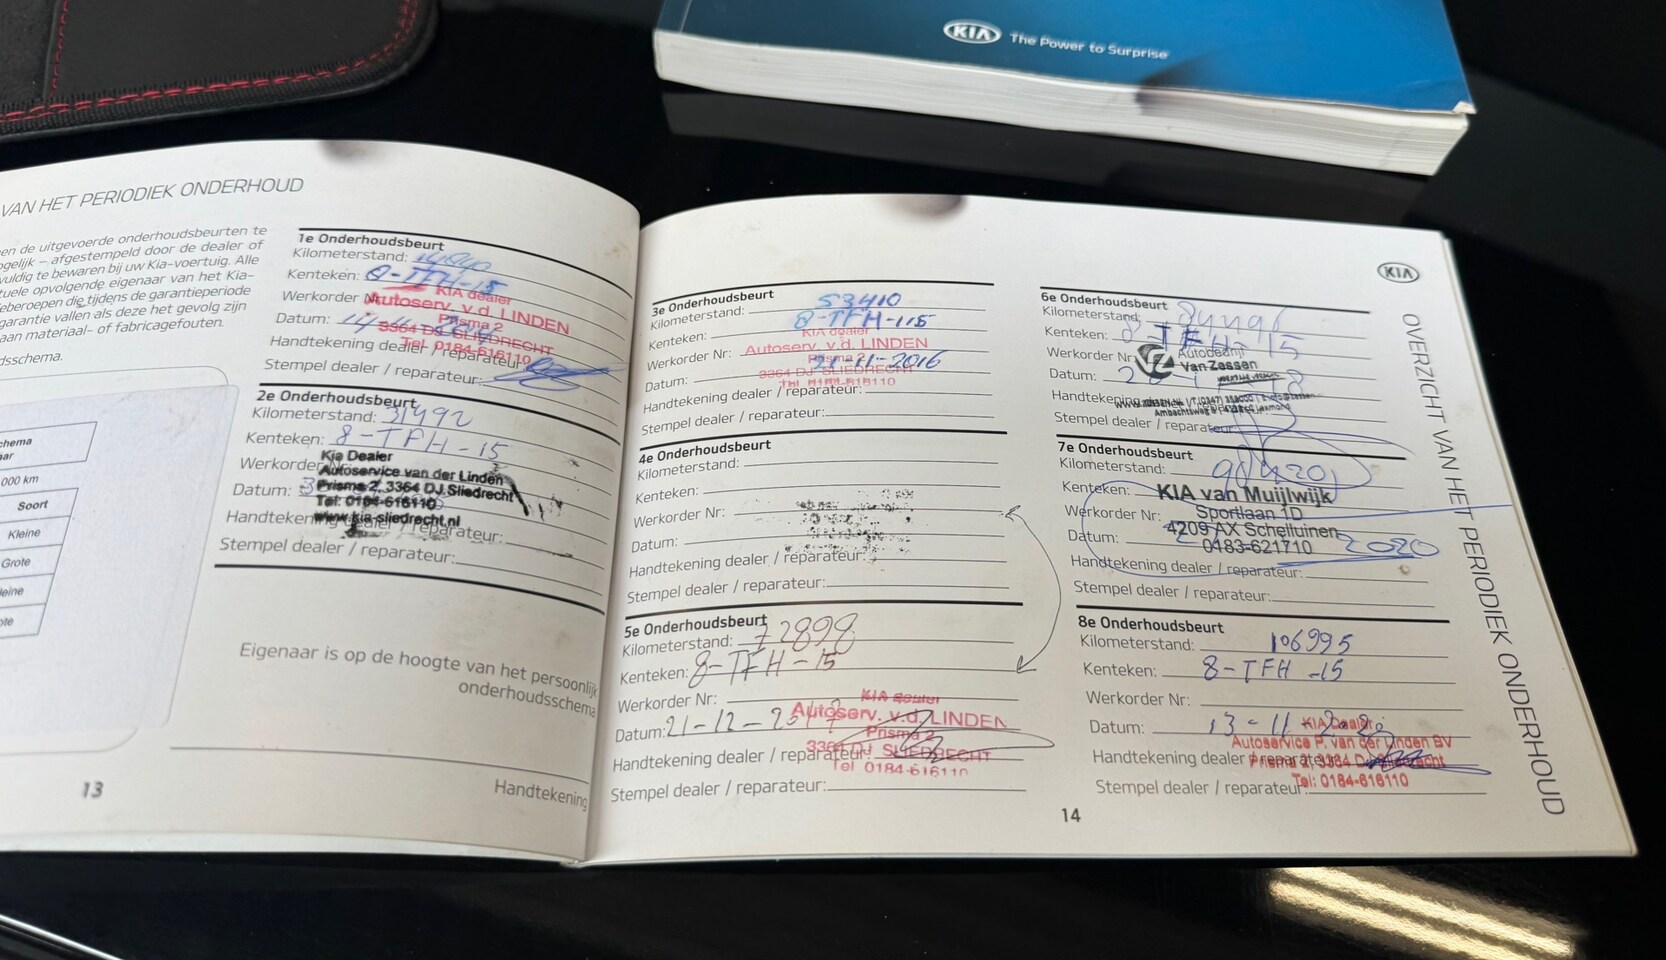 KIA The Power to Surprise
VAN HET PERIODIEK ONDERHOUD
en de uitgevoerde onderhoudsbeurten te
ogelijk – afgestempeld door de dealer of
vuldig te bewaren bij uw Kia-voertuig. Alle
tuele opvolgende eigenaar van het Kia-
eberoepen die tijdens de garantieperiode
garantie vallen als deze het gevolg zijn
an materiaal- of fabricagefouten.
dsschema.
000 km
Soort
Kleine
Grote
leine
Eigenaar is op de hoogte van het persoonlijk
onderhoudsschema
Handtekening
13
1e Onderhoudsbeurt
Kilometerstand:
Kenteken: 8-TFH-15
Werkorder
Datum:
Handtekening dealer / reparateur:
Stempel dealer / reparateur:
KIA dealer
Autoserv. v.d. LINDEN
Prisma 2
3364 DJ SLIEDRECHT
Tel. 0184-616110
2e Onderhoudsbeurt
Kilometerstand: 31492
Kenteken: 8-TFH-15
Werkorder
Datum:
Handtekening dealer / reparateur:
Stempel dealer / reparateur:
Kia Dealer
Autoservice van der Linden
Prisma 2, 3364 DJ Sliedrecht
Tel: 0184-616110
www.kia-sliedrecht.nl
3e Onderhoudsbeurt
Kilometerstand: 53410
Kenteken: 8-TFH-15
Werkorder Nr:
Datum: 11-2016
Handtekening dealer / reparateur:
Stempel dealer / reparateur:
KIA dealer
Autoserv. v.d. LINDEN
Prisma 2
3364 DJ SLIEDRECHT
Tel 0184-616110
4e Onderhoudsbeurt
Kilometerstand:
Kenteken:
Werkorder Nr:
Datum:
Handtekening dealer / reparateur:
Stempel dealer / reparateur:
5e Onderhoudsbeurt
Kilometerstand: 72898
Kenteken: 8-TFH-15
Werkorder Nr:
Datum: 21-12-2017
Handtekening dealer / reparateur:
Stempel dealer / reparateur:
KIA dealer
Autoserv. v.d. LINDEN
Prisma 2
3364 DJ SLIEDRECHT
Tel 0184-616110
14
KIA
6e Onderhoudsbeurt
Kilometerstand:
Kenteken: 8-TFH-15
Werkorder Nr:
Datum:
Handtekening
Stempel dealer / reparateur:
Autobedrijf
Van Zessen
7e Onderhoudsbeurt
Kilometerstand:
Kenteken:
Werkorder Nr:
Datum: 2020
Handtekening dealer / reparateur:
Stempel dealer / reparateur:
KIA van Muijlwijk
Sportlaan 1D
4209 AX Schelluinen
0183-621710
8e Onderhoudsbeurt
Kilometerstand: 106995
Kenteken: 8-TFH-15
Werkorder Nr:
Datum: 13-11-2020
Handtekening dealer / reparateur:
Stempel dealer / reparateur:
KIA Dealer
Autoservice P. van der Linden BV
Prisma 2, 3364 DJ Sliedrecht
Tel: 0184-616110
OVERZICHT VAN HET PERIODIEK ONDERHOUD